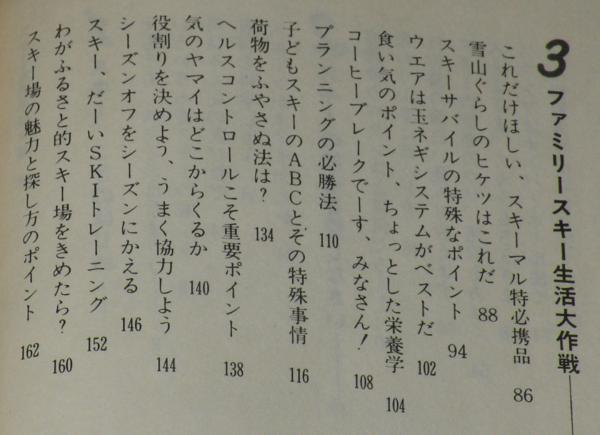 3 ファミリースキー生活大作戦
これだけほしい、スキーマル特必携品 86
雪山ぐらしのヒケツはこれだ 88
スキーサバイルの特殊なポイント 94
ウエアは玉ネギシステムがベストだ 102
食い気のポイント、ちょっとした栄養学 104
コーヒーブレークでーす、みなさん! 108
プランニングの必勝法 110
子どもスキーのABCとその特殊事情 116
荷物をふやさぬ法は? 134
ヘルスコントロールこそ重要ポイント 138
気のヤマイはどこからくるか 140
役割りを決めよう、うまく協力しよう 144
シーズンオフをシーズンにかえる 146
スキー、だーいSKIトレーニング 152
わがふるさと的スキー場をきめたら? 160
スキー場の魅力と探し方のポイント 162